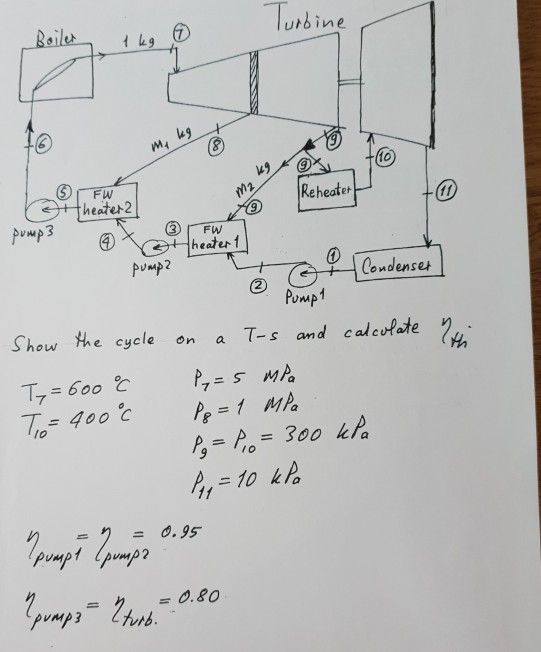 Turbine
Boiler
1 kg
⑦
⑥
m₁ kg
⑧
⑨
m₂ kg
⑨
⑩
Reheater
⑪
⑤
FW
heater2
pump3
④
⑨
③
FW
heater1
pump2
②
①
Pump1
Condenser
Show the cycle on a T-s and calculate η_th
T₇ = 600 °C
P₇ = 5 MPa
T₁₀ = 400 °C
P₈ = 1 MPa
P₉ = P₁₀ = 300 kPa
P₁₁ = 10 kPa
η_pump1 = η_pump2 = 0.95
η_pump3 = η_turb. = 0.80